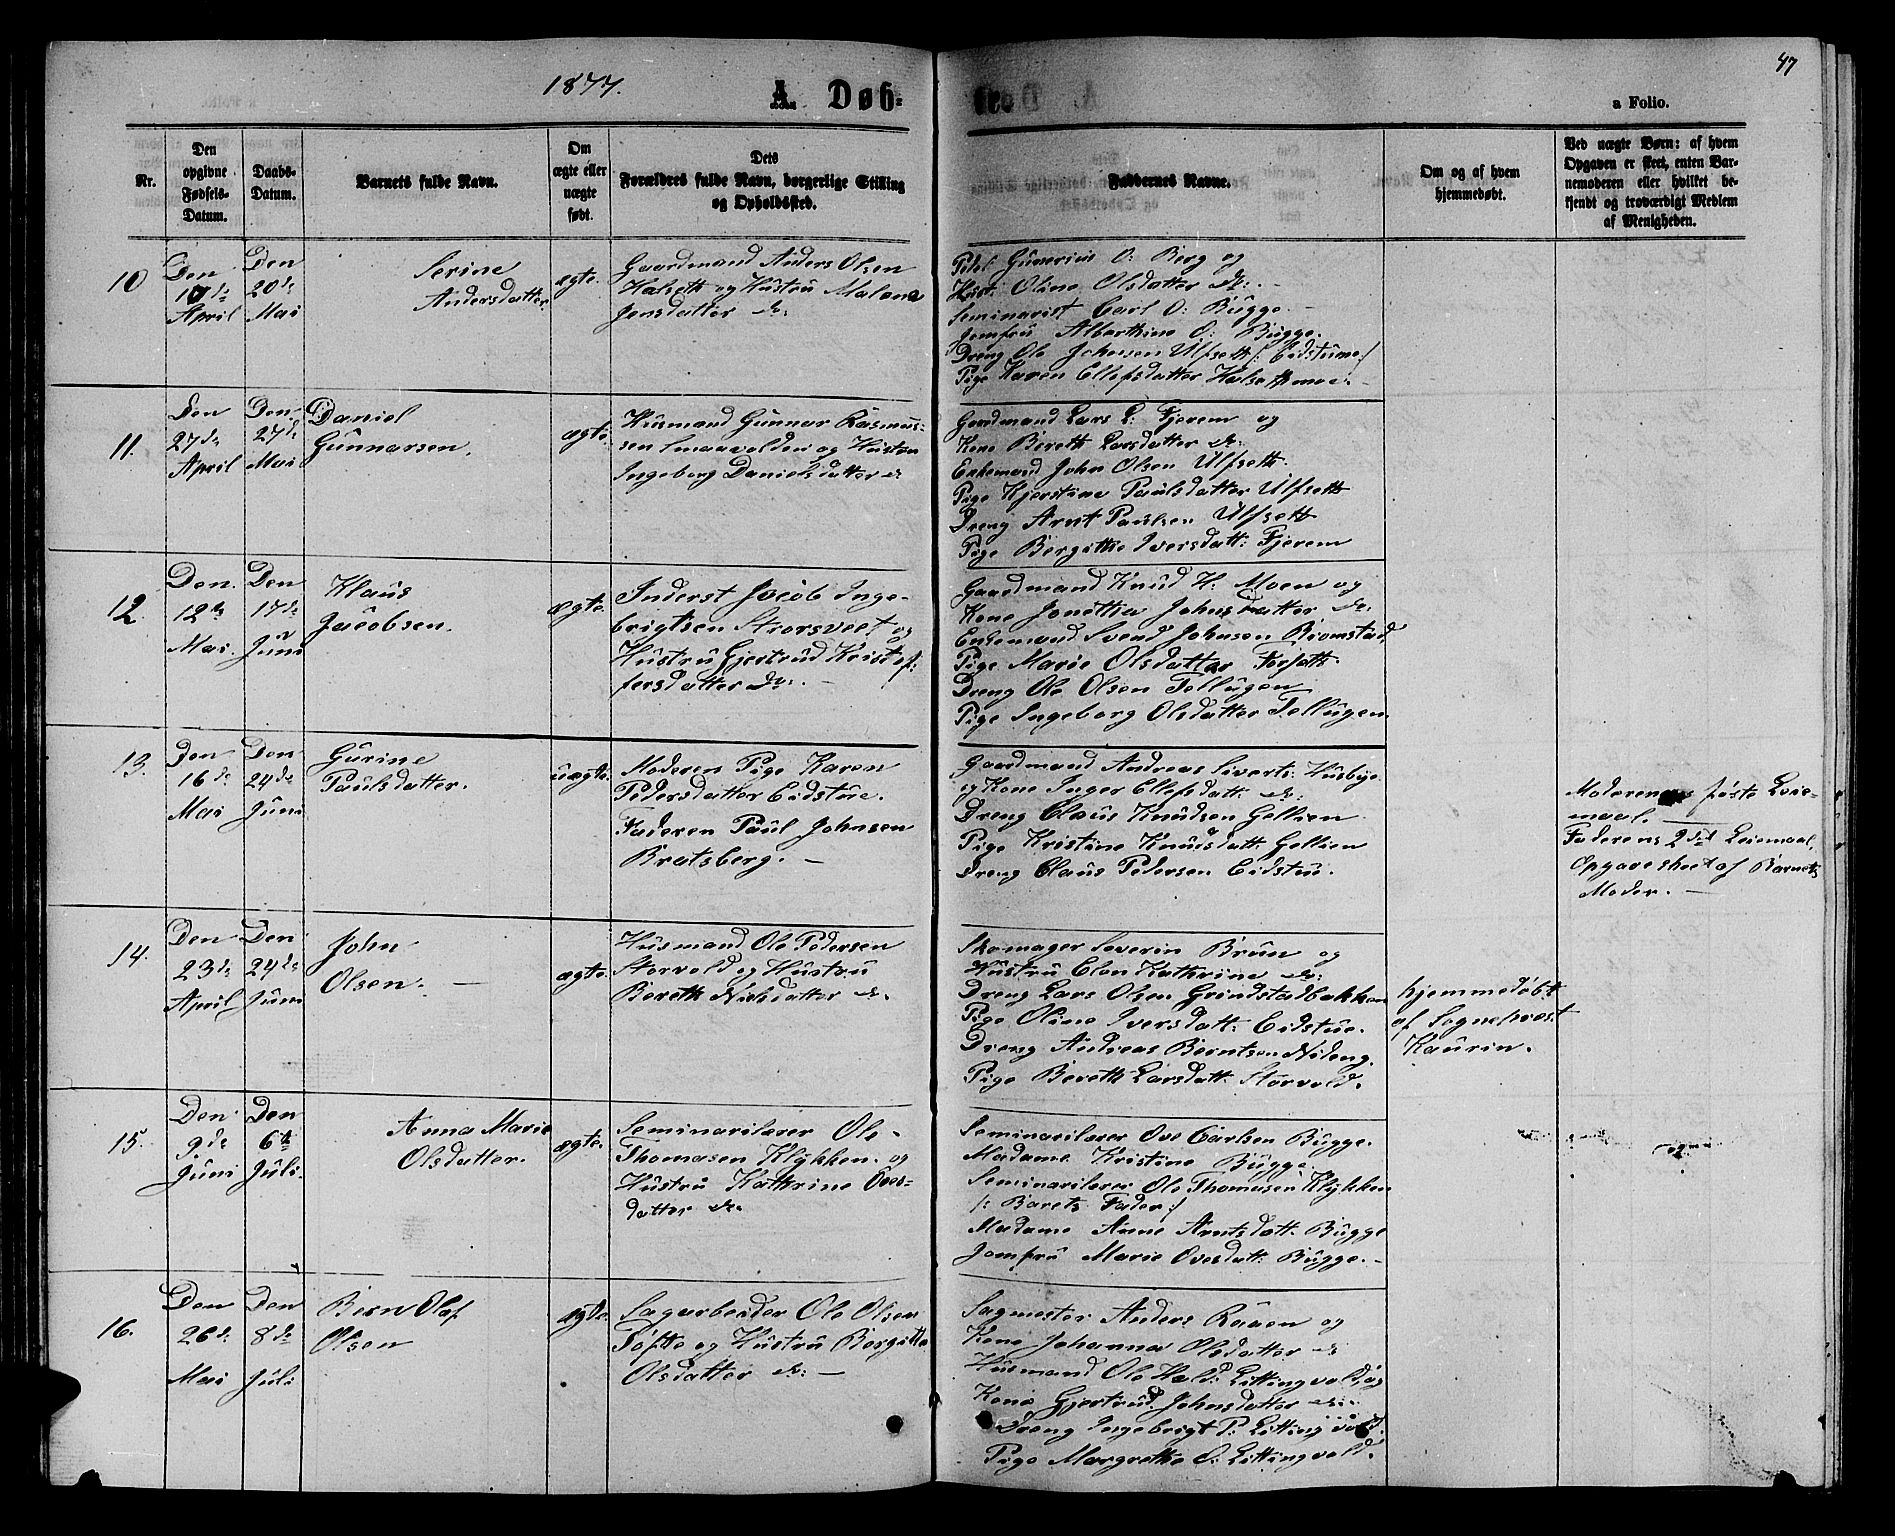 1877.
A. Døb-
te.
47
a Folio.
Nr.
Den
opgivne
Fødsels-
Datum.
Daabs-
Datum.
Barnets fulde Navn.
Om
ægte eller
uægte
født.
Dets
Forældres fulde Navn, borgerlige Stilling
og Opholdssted.
Faddernes Navne.
Om og af hvem
hjemmedøbt.
Ved uægte Børn: af hvem
Opgaven er skeet, enten Bar-
nemoderen eller hvilket be-
kjendt og troværdigt Medlem
af Menigheden.
10
Den
10de
April
Den
20de
Mai
Serine
Andersdatter
ægte.
Gaardmand Anders Olsen
Halseth og Hustru Malena
Jensdatter do:
Gunerius O: Berg og
Oline Olsdatter do: -
Seminarist Carl O: Bugge. -
Jomfru Albertine O: Bugge.
Dreng Ole Johnsen Ulfseth /: Eidstuene :/
Pige Karen Ellefsdatter Halsethmoe. -
11.
Den
27de
April
Den
27de
Mai
Daniel
Gunnarsen.
ægte.
Husmand Gunnar Rasmus-
sen Smaavolden og Hustru
Ingeborg Danielsdatter do
Gaardmand Lars L: Fjerem og
Kone Bereth Larsdatter do:
Enkemand John Olsen Ulfseth.
Pige Kjerstine Paulsdatter Ulfseth
Dreng Arnt Paulsen Ulfseth
Pige Bergitte Iversdatt: Fjerem
12.
Den
12te
Mai.
Den
17de
Juni
Klaus
Jacobsen.
ægte.
Inderst Jacob Inge-
brigtsen Storsveet og
Hustru Gjertrud Kristof-
fersdatter do:. -
Gaardmand Knud H: Moen og
Kone Jonetta Johnsdatter do:
Enkemand Svend Johnsen Bromstad
Pige Marie Olsdatter Forseth.
Dreng Ole Olsen Tellugen
Pige Ingeborg Olsdatter Tellugen
13.
Den
16de
Mai
Den
24de
Juni
Gurine
Paulsdatter.
uægte.
Moderen Pige Karen
Pedersdatter Eidstue.
Faderen Paul Johnsen
Bratsberg. -
Gaardmand Andreas Siverts: Husbye
og Kone Inger Ellefsdatt: do:
Dreng Claus Knudsen Gellien
Pige Kristine Knudsdatt: Gellien
Dreng Claus Pedersen Eidstu.
Moderens første Leie-
maal. -
Faderens 2det Leiemaal.
Opgave skeet af Barnets
Moder. -
14.
Den
23de
April
Den
24de
Juni
John
Olsen. -
ægte.
Husmand Ole Pedersen
Storvold og Hustru
Bereth Nielsdatter do.
Skomager Severin Bruun og
Hustru Elen Kathrine do:
Dreng Lars Olsen Grindstadbakken
Pige Oline Iversdatt: Eidstue.
Dreng Andreas Berntsen Nideng.
Pige Bereth Larsdatt: Storvold.
hjemmedøbt
af Sognepræst
Kaurin.
15.
Den
9de
Juni
Den
6te
Juli.
Anna Marie
Olsdatter.
ægte.
Seminarilærer Ole
Thomasen Klykken. og
Hustru Kathrine Oves-
datter do.
Seminarilærer Ove Carlsen Bugge.
Madame Kristine Bugge.
Seminarilærer Ole Thomasen Klykken
/: Barets Fader :/
Madame Anne Arntsdatt: Bugge
Jomfru Marie Ovesdatt: Bugge. -
16.
Den
26de
Mai
Den
8de
Juli
Bern Olaf
Olsen
ægte.
Sagarbeider Ole Olsen
Tøfte og Hustru Bergitta
Olsdatter do: -
Sagmester Anders Raaen og
Kone Johanna Olsdatter do:
Husmand Ole Hald: Littingvold og
Kone Gjertrud Johnsdatter do:
Dreng Ingebrigt P: Littingvold.
Pige Margrethe O: Littingvold.